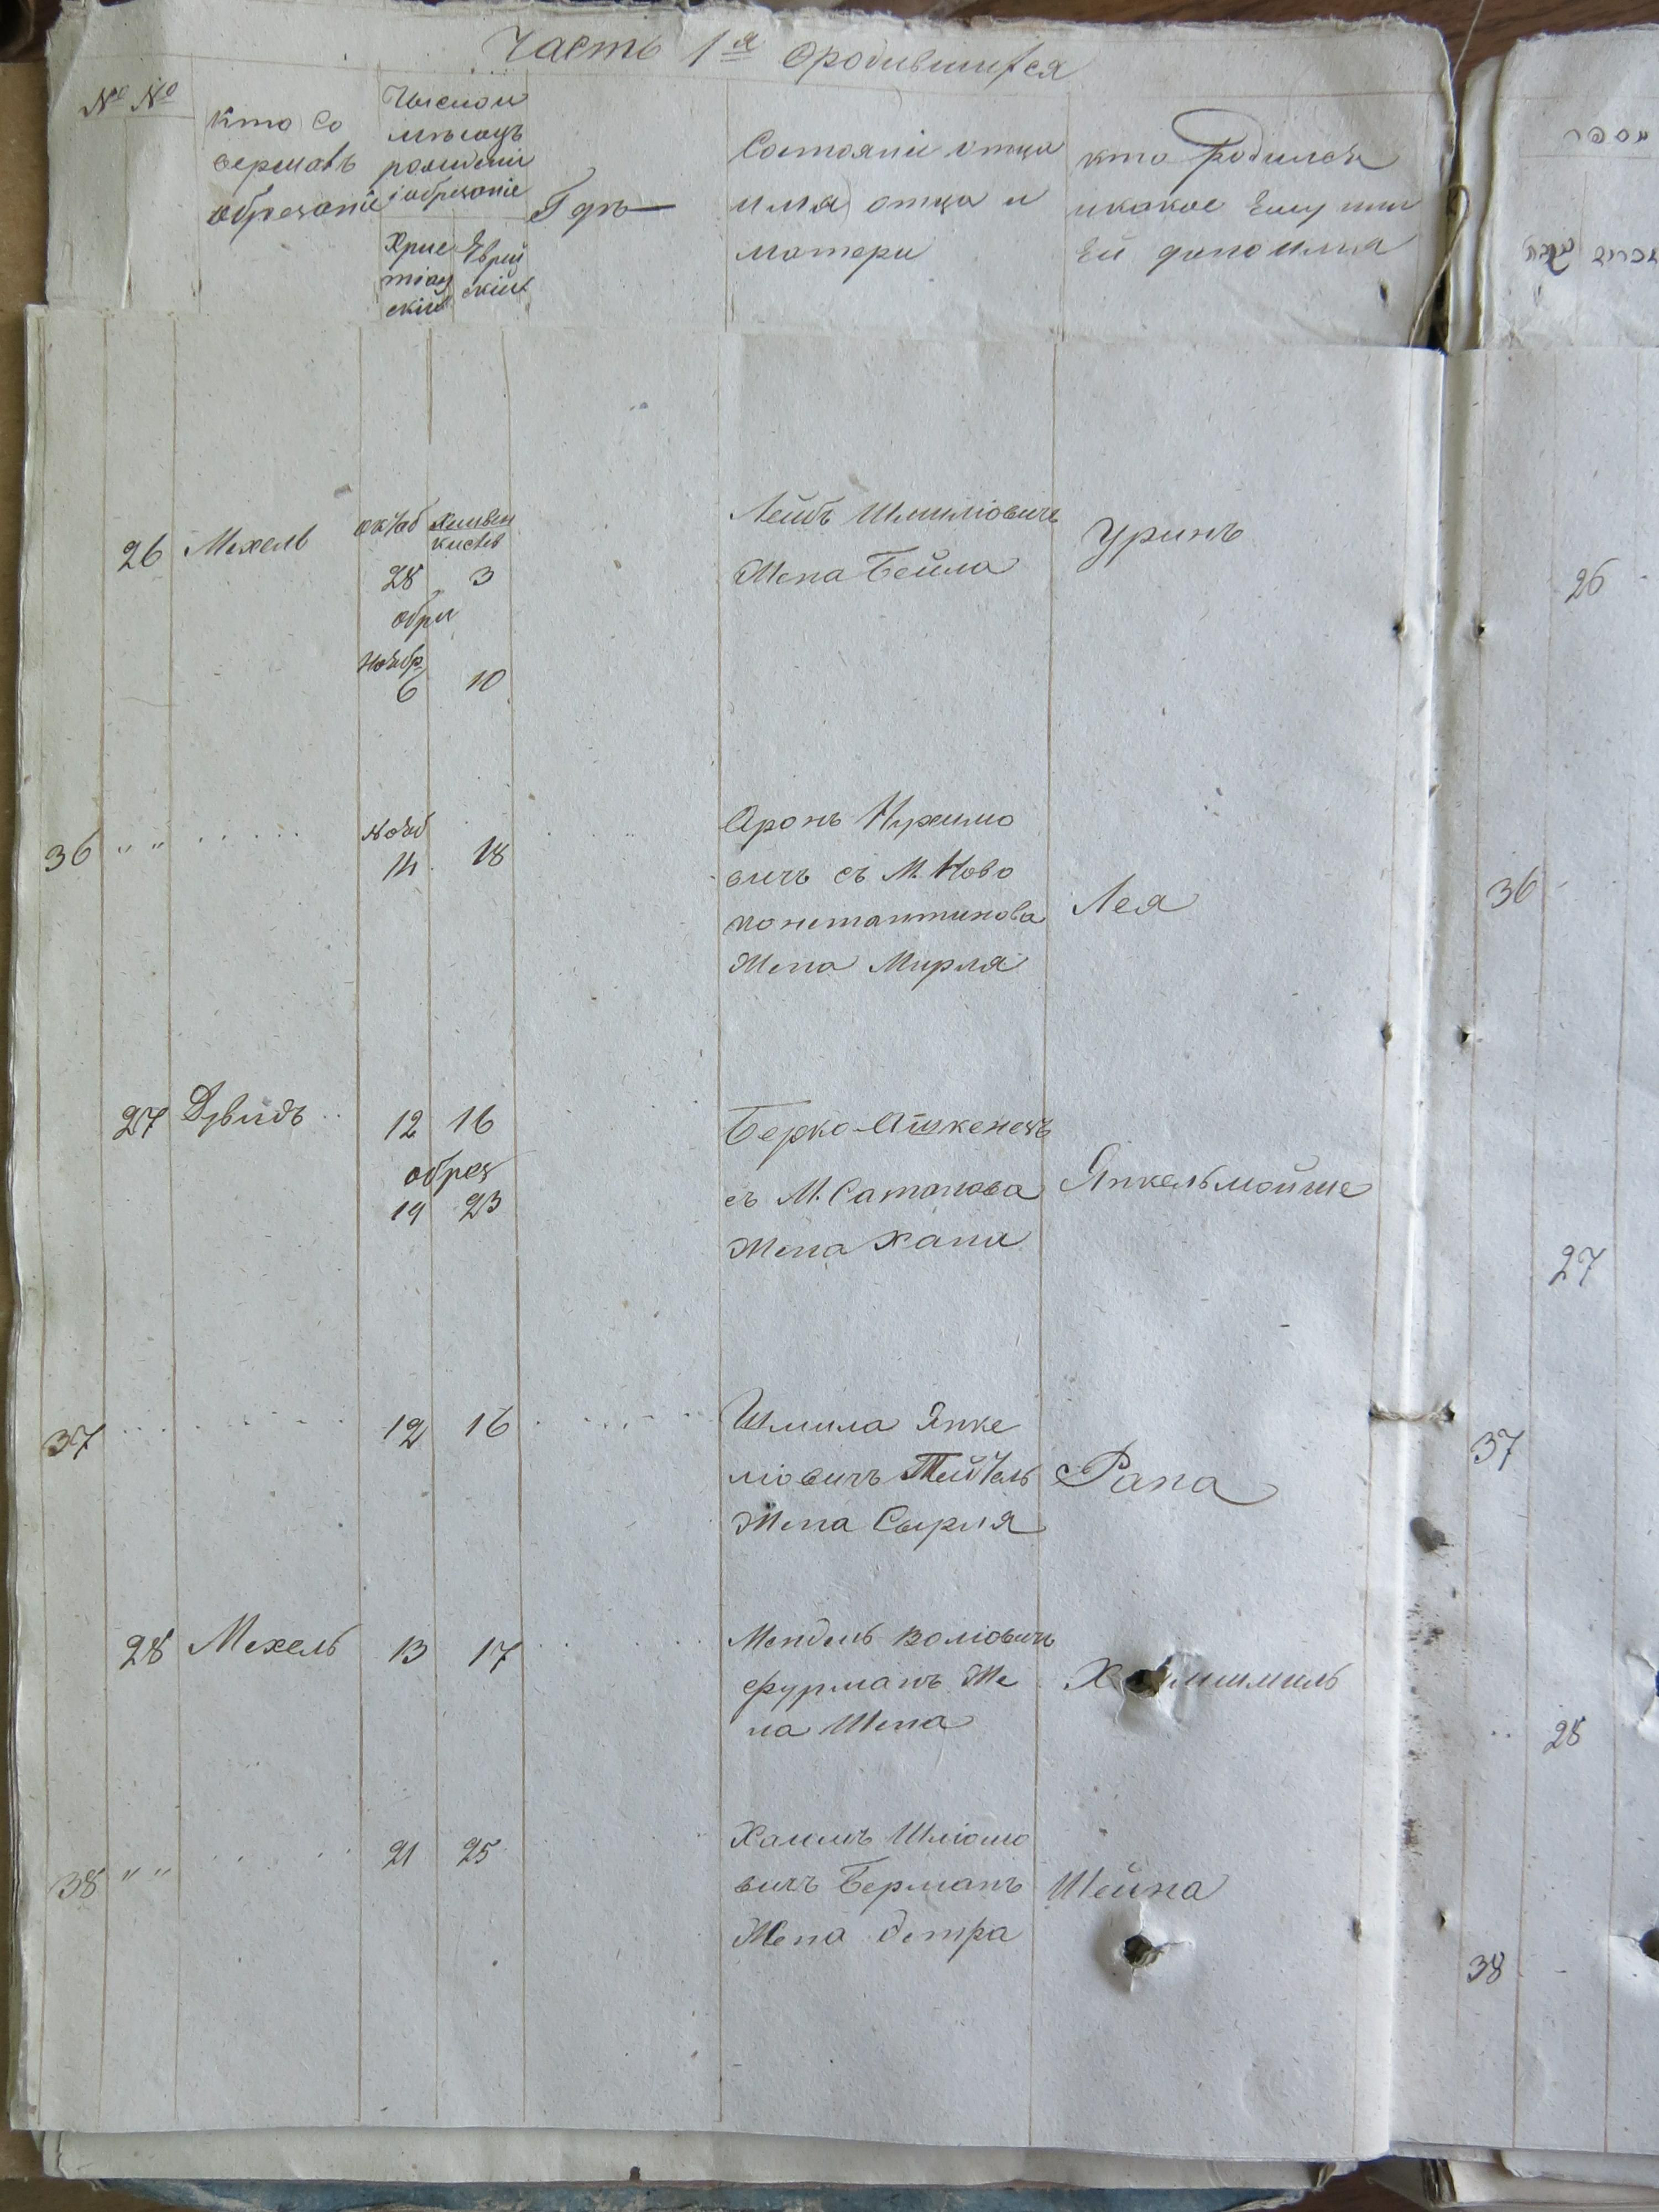 Часть 1я Ородившихся
№ №
кто со
вершавъ
обрезаніе
Число и
мѣсяцъ
рождения
і обрезаніе
Хрис
тіан
скій
Еврей
скій
Где
Состояніе отца
имя отца и
матери
кто родился
и какое Ему или
Ей дано имя
26 Мехель
октяб Хешвен
кислев
28 3
обри
Ноябр
6 10
Лейбъ Шмиліовичъ
Жена Бейла
Уринъ
26
36 " "
Нояб
14 18
Аронъ Нухимо
вичъ съ М. Ново
константинова
Жена Мирля
Лея
36
27 Дувидъ
12 16
обрез
19 23
Берко Ашкенезъ
съ М. Сатанова
Жена Хана
Янкельмойше
27
37
12 16
Шмила Янке
ліовичъ Тейтель
Жена Сырля
Рана
37
28 Мехель
13 17
Мендель Воліовичъ
фурманъ Же
на Шена
28
38 " "
21 25
Хаимъ Шліомо
вичъ Берманъ
Жена Естра
Шейна
38